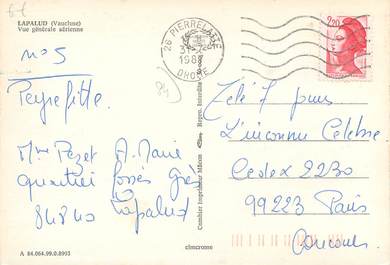 LAPALUD (Vaucluse)
Vue générale aérienne
n° 5
Peyrefitte.
Mme Pezet A. Marie
quartier fossés
84840 Lapalud
A 84.064.99.0.8993
26 PIERRELATTE
DROME
Combier Imprimeur Mâcon
Repro. Interdite
cimcrome
84
2,20
Télé 7 jours
L'inconnu Célèbre
Cedex 2230
99223 Paris
Concours